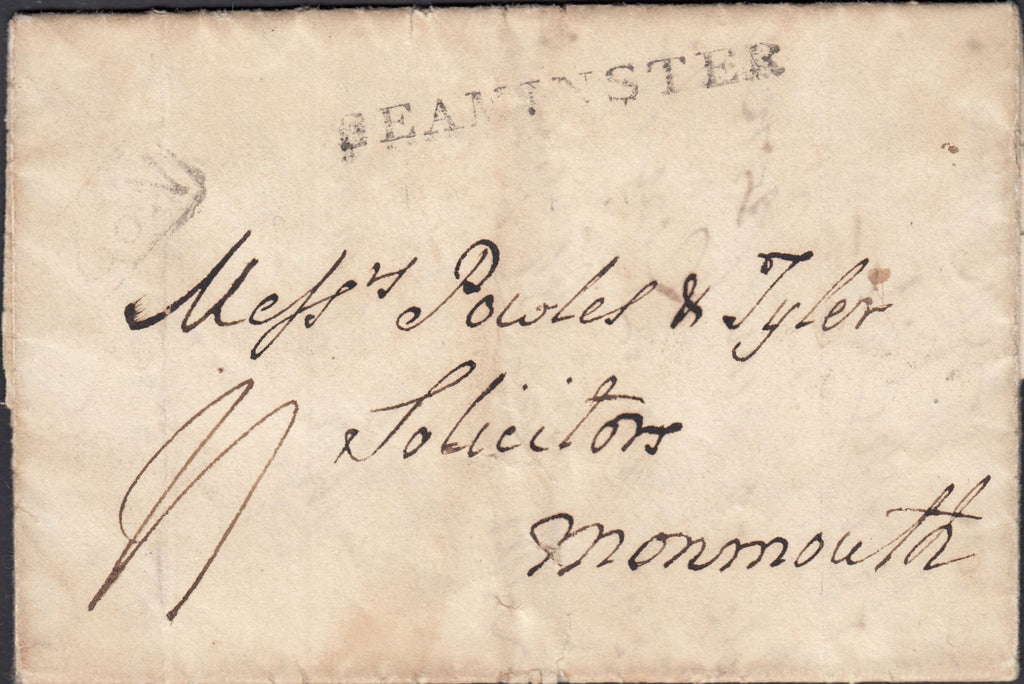 BEAMINSTER
Mess.rs Powles & Tyler
Solicitors
Monmouth
11